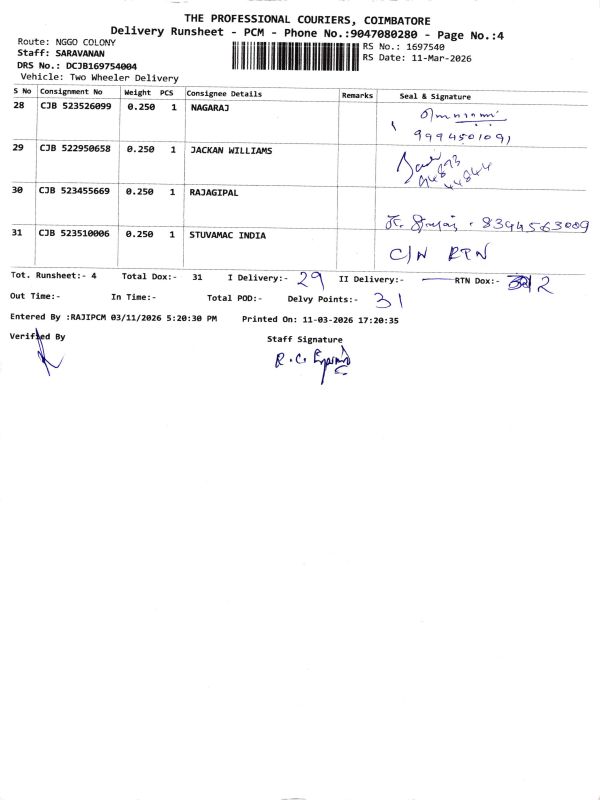 THE PROFESSIONAL COURIERS, COIMBATORE
Delivery Runsheet - PCM - Phone No.:9047080280 - Page No.:4
Route: NGGO COLONY
RS No.: 1697540
Staff: SARAVANAN
RS Date: 11-Mar-2026
DRS No.: DCJB169754004
Vehicle: Two Wheeler Delivery
S No Consignment No Weight PCS Consignee Details Remarks Seal & Signature
28 CJB 523526099 0.250 1 NAGARAJ
9994501091
29 CJB 522950658 0.250 1 JACKAN WILLIAMS
94873
44844
30 CJB 523455669 0.250 1 RAJAGIPAL
8344563009
31 CJB 523510006 0.250 1 STUVAMAC INDIA
C/N RTN
Tot. Runsheet:- 4 Total Dox:- 31 I Delivery:- 29 II Delivery:- RTN Dox:- 2
Out Time:- In Time:- Total POD:- Delvy Points:- 31
Entered By :RAJIPCM 03/11/2026 5:20:30 PM Printed On: 11-03-2026 17:20:35
Verified By
Staff Signature